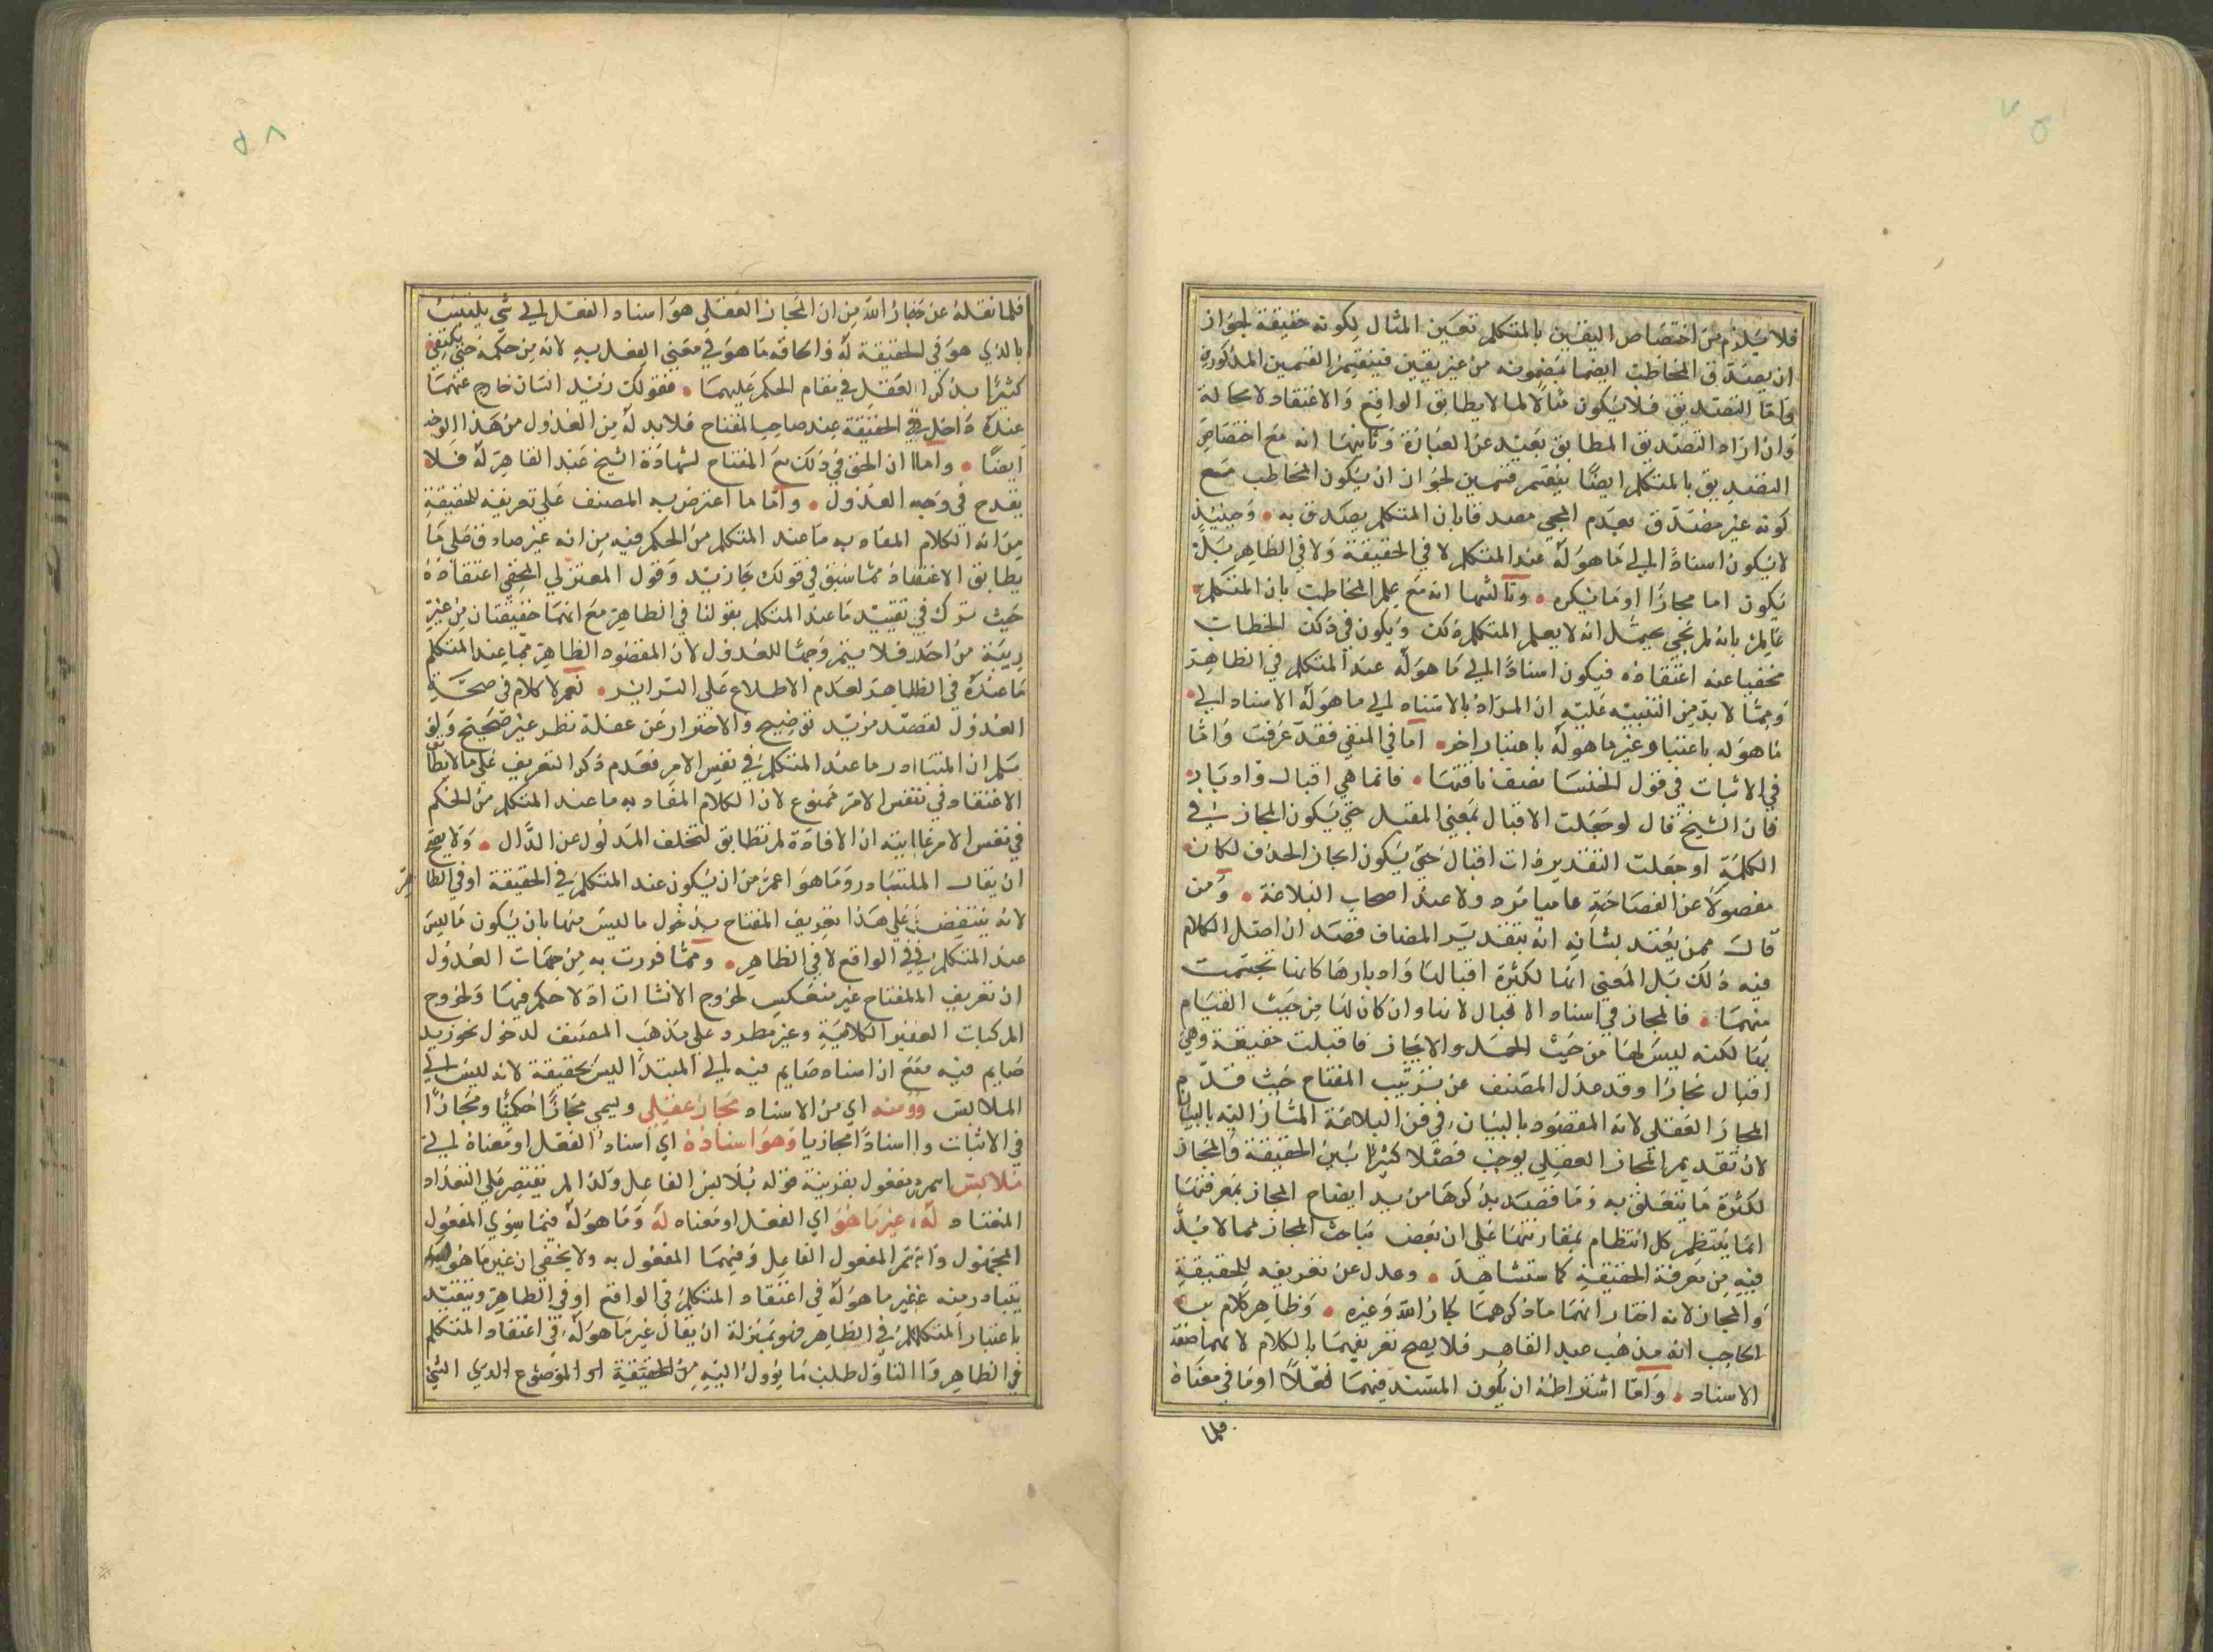 فلا يلزم من اختصاص اليقين بالمتكلم تعين المثال لكونه حقيقة لجواز
ان يصدق المخاطب ايضا بمضمونه من غير يقين فينقسم القسمين المذكورين
واما التصديق فلا يكون مثالا لما لا يطابق الواقع والاعتقاد لا محالة
وان اراد التصديق المطابق بعيد عن العبارة وثانيها انه مع اختصاص
التصديق بالمتكلم ايضا ينقسم قسمين لجواز ان يكون المخاطب مع
كونه غير مصدق بعدم المجي مصدقا بان المتكلم يصدق به وحينئذ
لا يكون اسنادا الى ما هو له عند المتكلم لا في الحقيقة ولا في الظاهر بل
يكون اما مجازا او ما ينكره وثالثها انه مع علم المخاطب بان المتكلم
عالم بانه لم يجي يحتمل انه لا يعلم المتكلم ذلك ويكون في ذلك الخطاب
مخفيا عنه اعتقاده فيكون اسنادا الى ما هو له عند المتكلم في الظاهر
ومما لا بد من التنبيه عليه ان المراد بالاسناد الى ما هو له الاسناد الى
ما هو له باعتبار وغير ما هو له باعتبار اخر اما في المنفي فقد عرفت واما
في الاثبات في قول الخنسا تصف ناقتها فانما هي اقبال وادبار
فان الشيخ قال لو جعلت الاقبال بمعنى المقبل حتى يكون المجاز في
الكلمة او جعلت التقدير ذات اقبال حتى يكون مجاز الحذف لكان
مفصولا عن الفصاحة عاميا مرد ولا عند اصحاب البلاغة ومن
قال ممن يعتد بشانه انه بتقدير المضاف قصد ان اصل الكلام
فيه ذلك بل المعنى انها لكثرة اقبالها وادبارها كانها تجسمت
منهما فالمجاز في اسناد الاقبال لانها وان كان لها من حيث القيام
بها لكنه ليس لها من حيث الحمل والاتحاد فاقبلت حقيقة وهي
اقبال مجازا وقد عدل المصنف عن ترتيب المفتاح حيث قدم
المجاز العقلي لانه المقصود بالبيان في فن البلاغة المشار اليه بالبيان
لان تقديم المجاز العقلي يوجب فصلا كثيرا بين الحقيقة والمجاز
لكثرة ما يتعلق به وما قصد بذكرها من يد ايضاح المجاز بمعرفتها
انما ينتظم كل انتظام بمقارنتها على ان بعض مباحث المجاز مما لا بد
فيه من معرفة الحقيقة كما ستشاهد وعدل عن تعريفه للحقيقة
والمجاز لانه اختار انهما ما ذكرهما جار الله وغيره وظاهر كلام
الحاجب انه مذهب عبد القاهر فلا يصح تعريفهما بالكلام لانهما صفة
الاسناد واما اشتراطه ان يكون المسند فيهما فعلا او ما في معناه
فلما
فلما نقله عن جار الله من ان المجاز العقلي هو اسناد الفعل الى شي يتلبس
بالذي هو في الحقيقة له والحاقه ما هو في معنى الفعل به لانه من حكمه حتى يكتفي
كثيرا بذكر الفعل في مقام الحكم عليهما فقولك زيد انسان خارج عنهما
عنده داخل في الحقيقة عند صاحب المفتاح فلا بد له من العدول من هذا الوجه
ايضا واما ان الحق في ذلك مع المفتاح لشهادة الشيخ عبد القاهر له فلا
يقدح في وجه العدول واما ما اعترض به المصنف على تعريفه للحقيقة
من انه الكلام المفاد به ما عند المتكلم من الحكم فيه من انه غير صادق على ما
يطابق الاعتقاد مما سبق في قولك جا زيد وقول المعتزلي المخفي اعتقاده
حيث ترك في تقييد ما عند المتكلم بقولنا في الظاهر مع انهما حقيقتان من غير
ريبة من احد فلا يتم وجها للعدول لان المقصود الظاهر مما عند المتكلم
ما عنده في الظاهر لعدم الاطلاع على السراير نعم لا كلام في صحة
العدول لقصد مزيد توضيح والاحتراز عن غفلة نظر غير صحيح ولو
سلم ان المتبادر ما عند المتكلم في نفس الامر فعدم ذكر التعريف على ما لا يطابق
الاعتقاد في نفس الامر ممنوع لان الكلام المفاد به ما عند المتكلم من الحكم
في نفس الامر غايته ان الافادة لم تطابق لتخلف المدلول عن الدال ولا يصح
ان يقال المتبادر وما هو اعم من ان يكون عند المتكلم في الحقيقة او في الظاهر
لانه ينتقض على هذا تعريف المفتاح بدخول ما ليس منها بان يكون ما ليس
عند المتكلم في الواقع لا في الظاهر ومما فورت به من جهات العدول
ان تعريف المفتاح غير منعكس لخروج الانشاات اذ لا حكم فيها ولخروج
المركبات الغير الكلامية وغير مطرد على مذهب المصنف لدخول نحو زيد
صايم فيه مع ان اسناد صايم فيه الى المبتدا ليس بحقيقة لانه ليس الى
الملابس ومنه اي من الاسناد مجاز عقلي ويسمى مجازا حكميا ومجازا
في الاثبات واسنادا مجازيا وهو اسناده اي اسناد الفعل او معناه الى
ملابس اسم مفعول بقرينة قوله يلابس الفاعل ولذا لم يقتصر على التعداد
المعتاد له غير ما هو اي الفعل او معناه له وما هو له فيما سوى المفعول
المجهول واسم المفعول الفاعل وفيهما المفعول به ولا يخفى ان غير ما هو له
يتبادر منه غير ما هو له في اعتقاد المتكلم في الواقع او في الظاهر وبتقييد
باعتبار المتكلم في الظاهر فهو بمنزلة ان يقال غير ما هو له في اعتقاد المتكلم
في الظاهر والتاول طلب ما يؤول اليه من الحقيقة او الموضوع الذي الشي